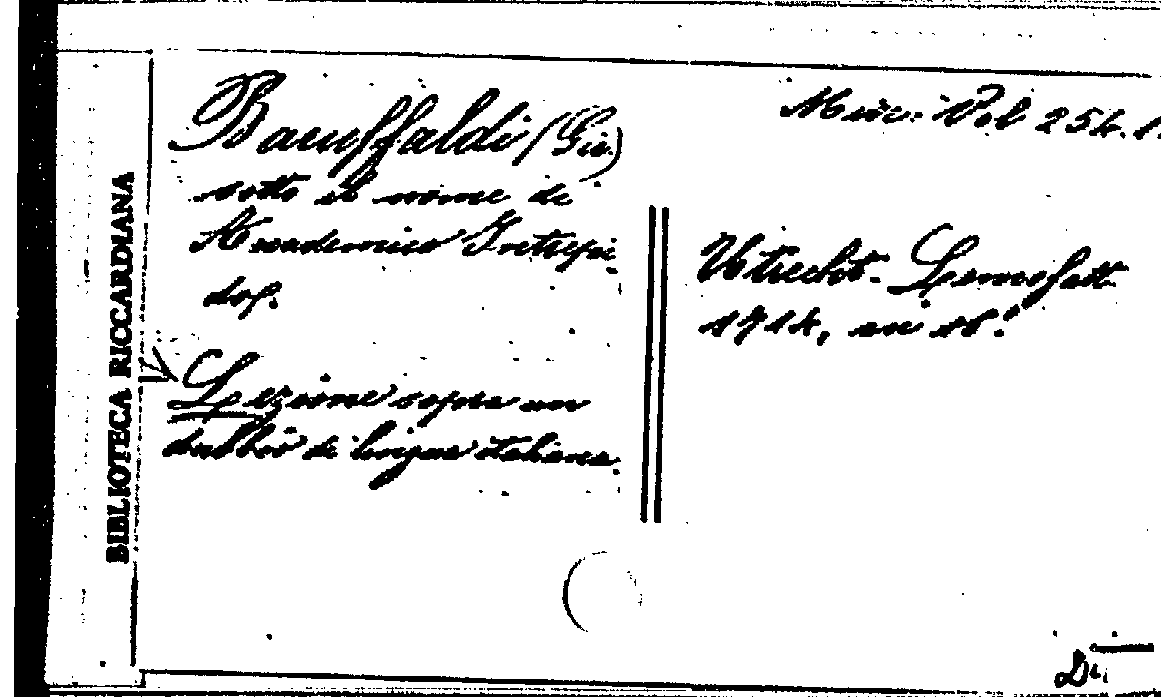 BIBLIOTECA RICCARDIANA
Baruffaldi (Gir.)
sotto il nome di
Accademico Intrepi-
do.
Lezione sopra un
dubbio di lingua italiana.
Misc. Vol 254.1.
Utrecht.
1714, in 16.°